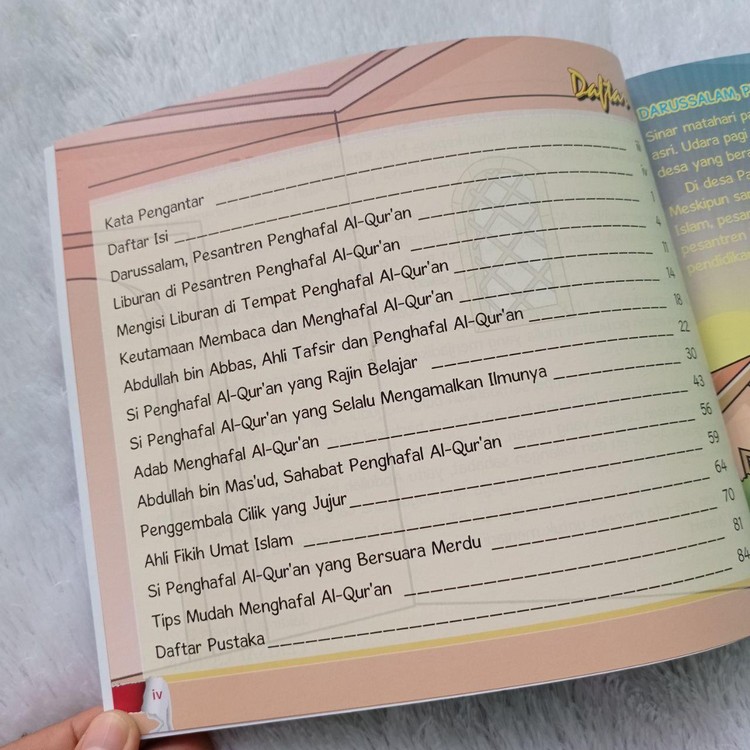 Kata Pengantar iii
Daftar Isi iv
Darussalam, Pesantren Penghafal Al-Qur'an 1
Liburan di Pesantren Penghafal Al-Qur'an 4
Mengisi Liburan di Tempat Penghafal Al-Qur'an 11
Keutamaan Membaca dan Menghafal Al-Qur'an 14
Abdullah bin Abbas, Ahli Tafsir dan Penghafal Al-Qur'an 18
Si Penghafal Al-Qur'an yang Rajin Belajar 22
Si Penghafal Al-Qur'an yang Selalu Mengamalkan Ilmunya 30
Adab Menghafal Al-Qur'an 43
Abdullah bin Mas'ud, Sahabat Penghafal Al-Qur'an 56
Penggembala Cilik yang Jujur 59
Ahli Fikih Umat Islam 64
Si Penghafal Al-Qur'an yang Bersuara Merdu 70
Tips Mudah Menghafal Al-Qur'an 81
Daftar Pustaka 84
iv
DARUSSALAM,
Sinar matahari
asri. Udara
desa yang
Di desa
Meskipun
Islam,
pesantren